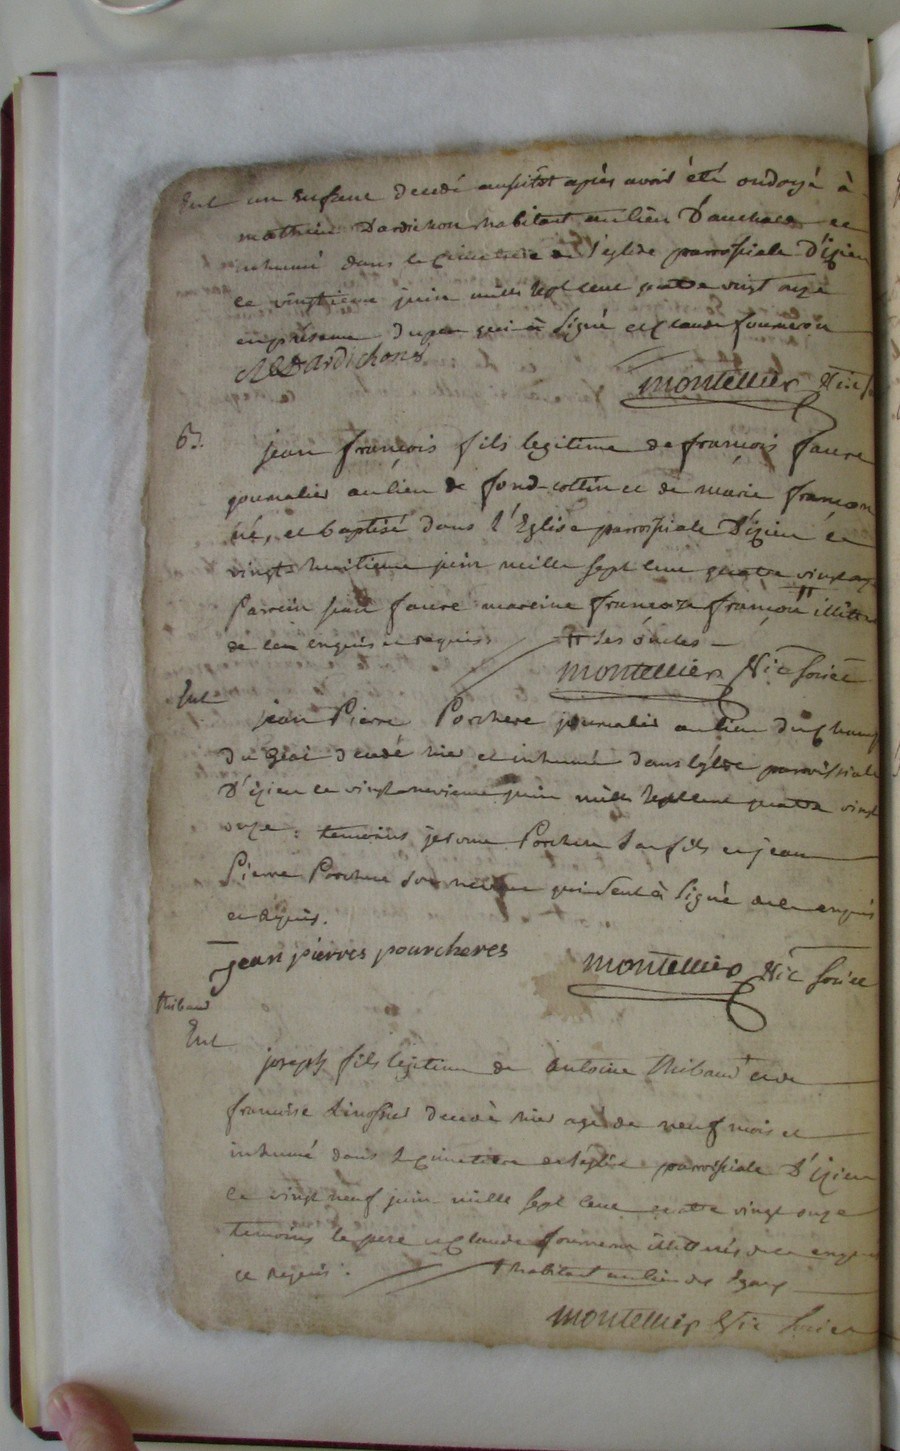 Ent un Enfant decedé aussitot après avoir été ondoyé à
mathieu Dardichon habitant au lieu D'auchale et
inhumé dans le cimetiere de l'église parroissiale D'izieu
ce vingtieme juin mille sept cent quatre vingt onze
en présence du pere qui à signé et claude fourneron
MDardichons
montellier Vic
B. jean françois fils legitime de françois faure
journalier au lieu de fond-cottin et de marie françon
né, et baptisé dans l'Eglise parroissiale D'izieu ce
vingt-huitieme juin mille sept cent quatre vingt onze
Parrein jean faure mareine françoise françon # illitté
de ce enquis et requis # ses oncles
montellier Vic
Ent jean Pierre Porchere journalier au lieu du champ
du geai decedé hier et inhumé dans l'église parroissiale
D'izieu ce vingt-neuvieme juin mille sept cent quatre vingt
onze : temoins jerome Porchere son fils et jean
Pierre Porchere son neveu qui seul à signé de ce enquis
et requis.
jean pierres pourcheres
montellier Vic
thibaud
Ent joseph fils legitime de antoine thibaud + et de
francoise decedé hier agé de neuf mois et
inhumé dans le cimetiere de l'eglise parroissiale D'izieu
ce vingt neuf juin mille sept cent quatre vingt onze
temoins le pere et claude fourneron illittérés de ce enquis
et requis. + habitant au lieu des
montellier Vic